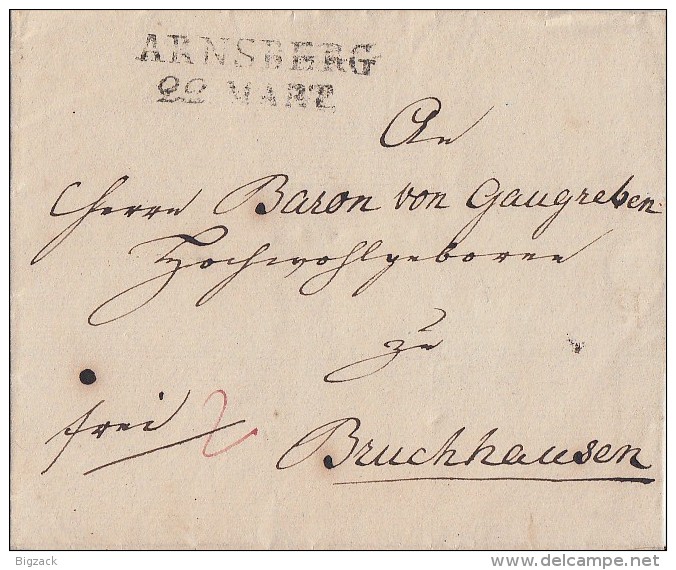 ARNSBERG
22 MARZ
An
Herrn Baron von Gaugreben
Hochwohlgeboren
zu
frei 2
Bruchhausen
Bigzack
delcampe.net